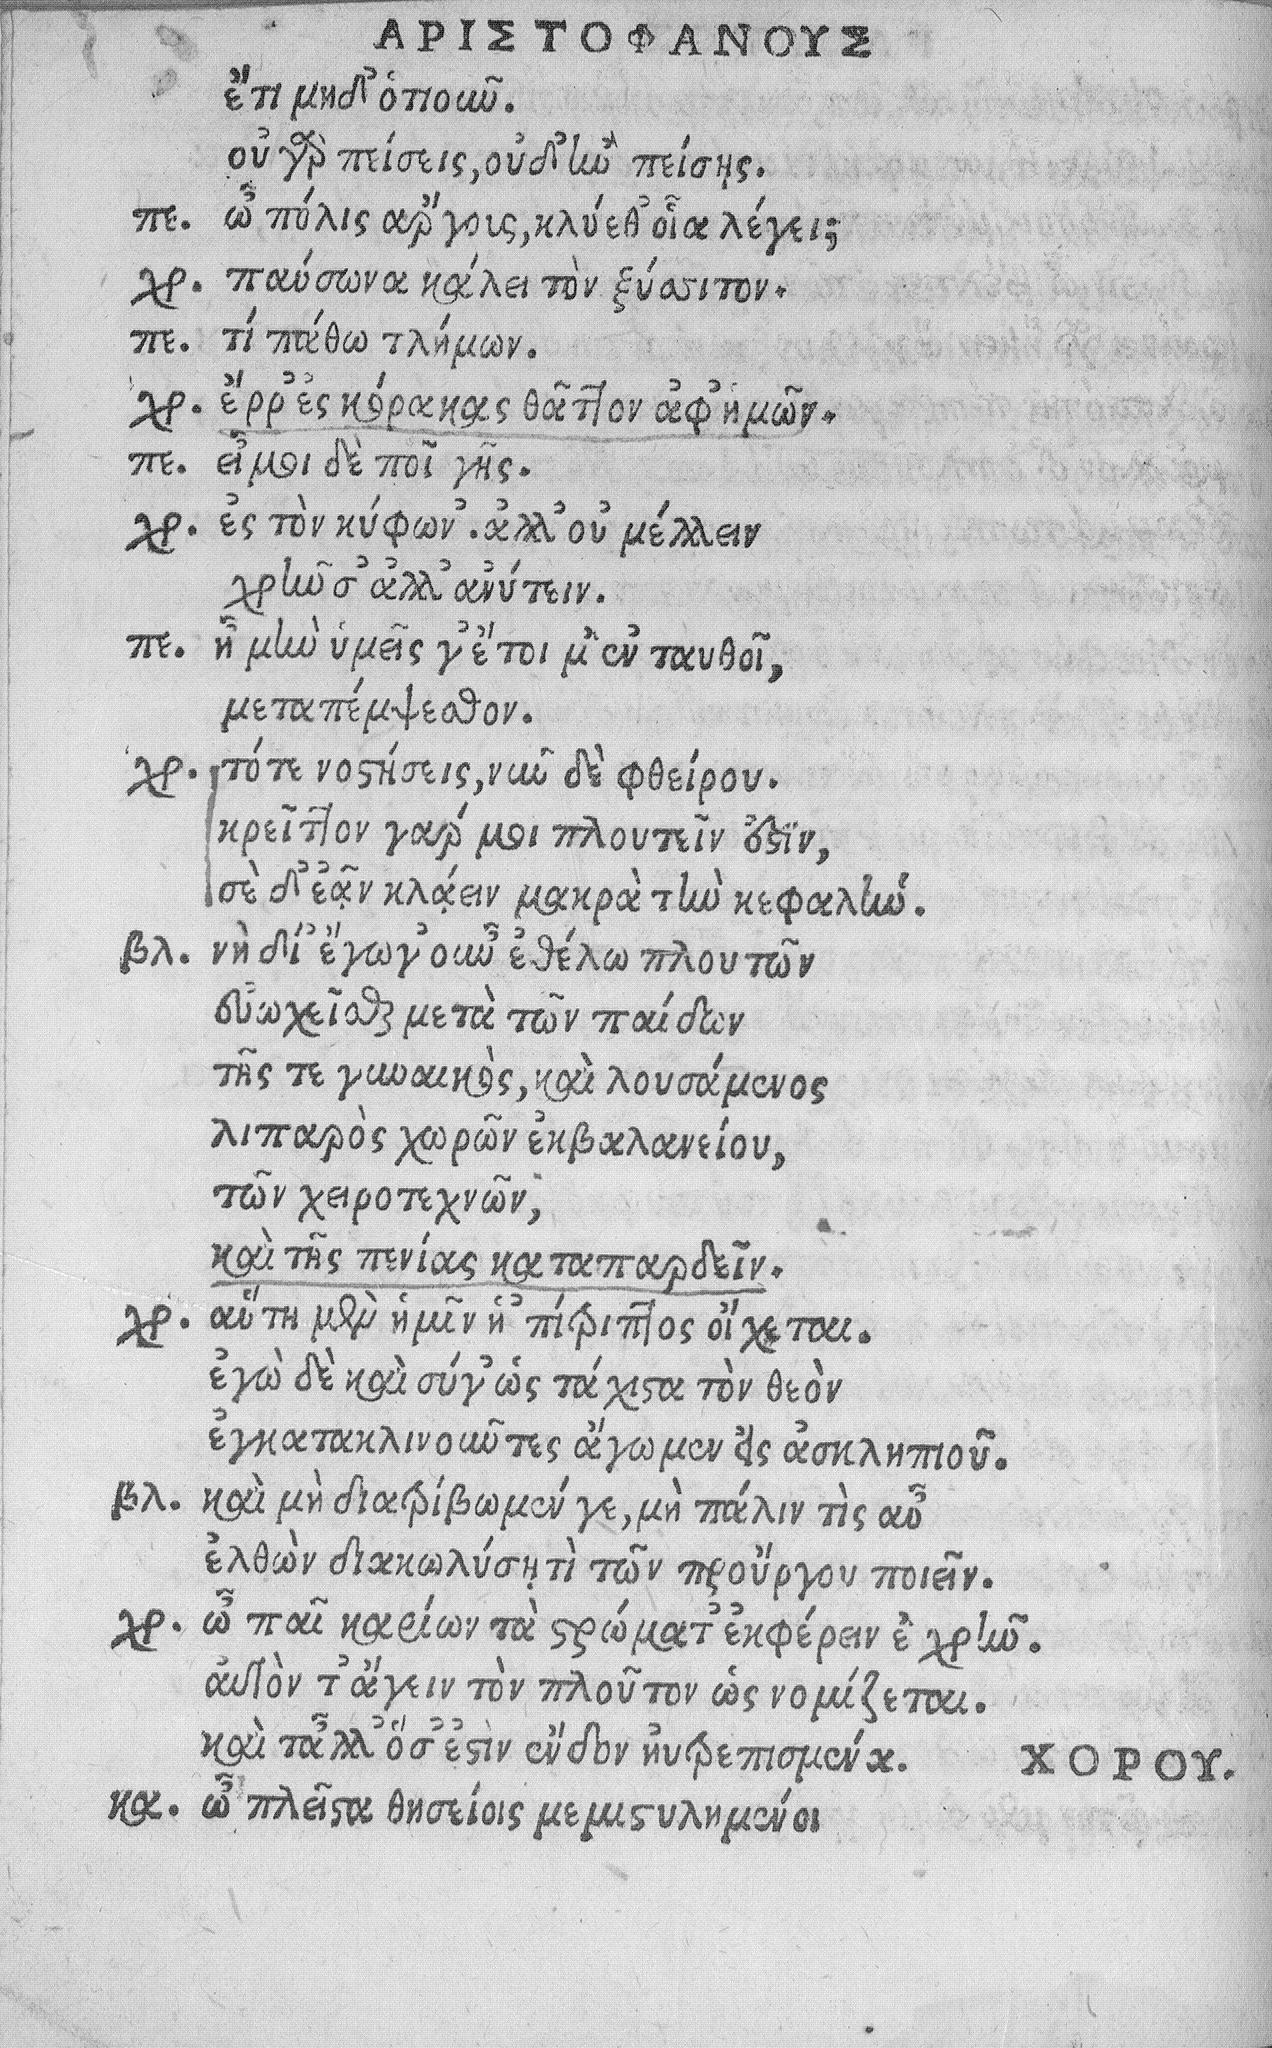 ΑΡΙΣΤΟΦΑΝΟΥΣ
ἔτι μηδ' ὁτιοῦν.
οὐ γὰρ πείσεις, οὐδ' ἢν πείσης.
πε. ὦ πόλις ἄργους, κλύεθ' οἷα λέγει;
χρ. παύσωνα κάλει τὸν ξύσσιτον.
πε. τί πάθω τλήμων.
χρ. ἔρρ' ἐς κόρακας θᾶττον ἀφ' ἡμῶν.
πε. εἶμοι δὲ ποῖ γῆς.
χρ. ἐς τὸν κύφων'. ἀλλ' οὐ μέλλειν
χρῆν σ' ἀλλ' ἀνύτειν.
πε. ἦ μὴν ὑμεῖς γ' ἔτοι μ' ἐν ταυθοῖ,
μεταπέμψεσθον.
χρ. τότε νοστήσεις, νῦν δὲ φθείρου.
κρεῖττον γάρ μοι πλουτεῖν ὅστιν,
σὲ δ' ἐᾷν κλάειν μακρὰ τὴν κεφαλήν.
βλ. νὴ δί' ἔγωγ' οὖν ἐθέλω πλουτῶν
εὐωχεῖσθαι μετὰ τῶν παίδων
τῆς τε γυναικὸς, καὶ λουσάμενος
λιπαρὸς χωρῶν ἐκβαλανείου,
τῶν χειροτεχνῶν,
καὶ τῆς πενίας καταπαρδεῖν.
χρ. αὕτη μὲν ἡμῖν ἡ 'πίτριπτος οἴχεται.
ἐγὼ δὲ καὶ σύγ' ὡς τάχιστα τὸν θεὸν
ἐγκατακλινοῦντες ἄγωμεν εἰς ἀσκληπιοῦ.
βλ. καὶ μὴ διατρίβωμέν γε, μὴ πάλιν τὶς αὖ
ἐλθὼν διακωλύσῃ τὶ τῶν προὔργου ποιεῖν.
χρ. ὦ παῖ καρίων τὰ στρώματ' ἐκφέρειν ἐ χρῆν.
αὐτὸν τ' ἄγειν τὸν πλοῦτον ὡς νομίζεται.
καὶ τἆλλ' ὅσ' ἐστὶν ἔνδον ηὐτρεπισμένα. ΧΟΡΟΥ.
κα. ὦ πλεῖστα θησείοις μεμιστυλημένοι